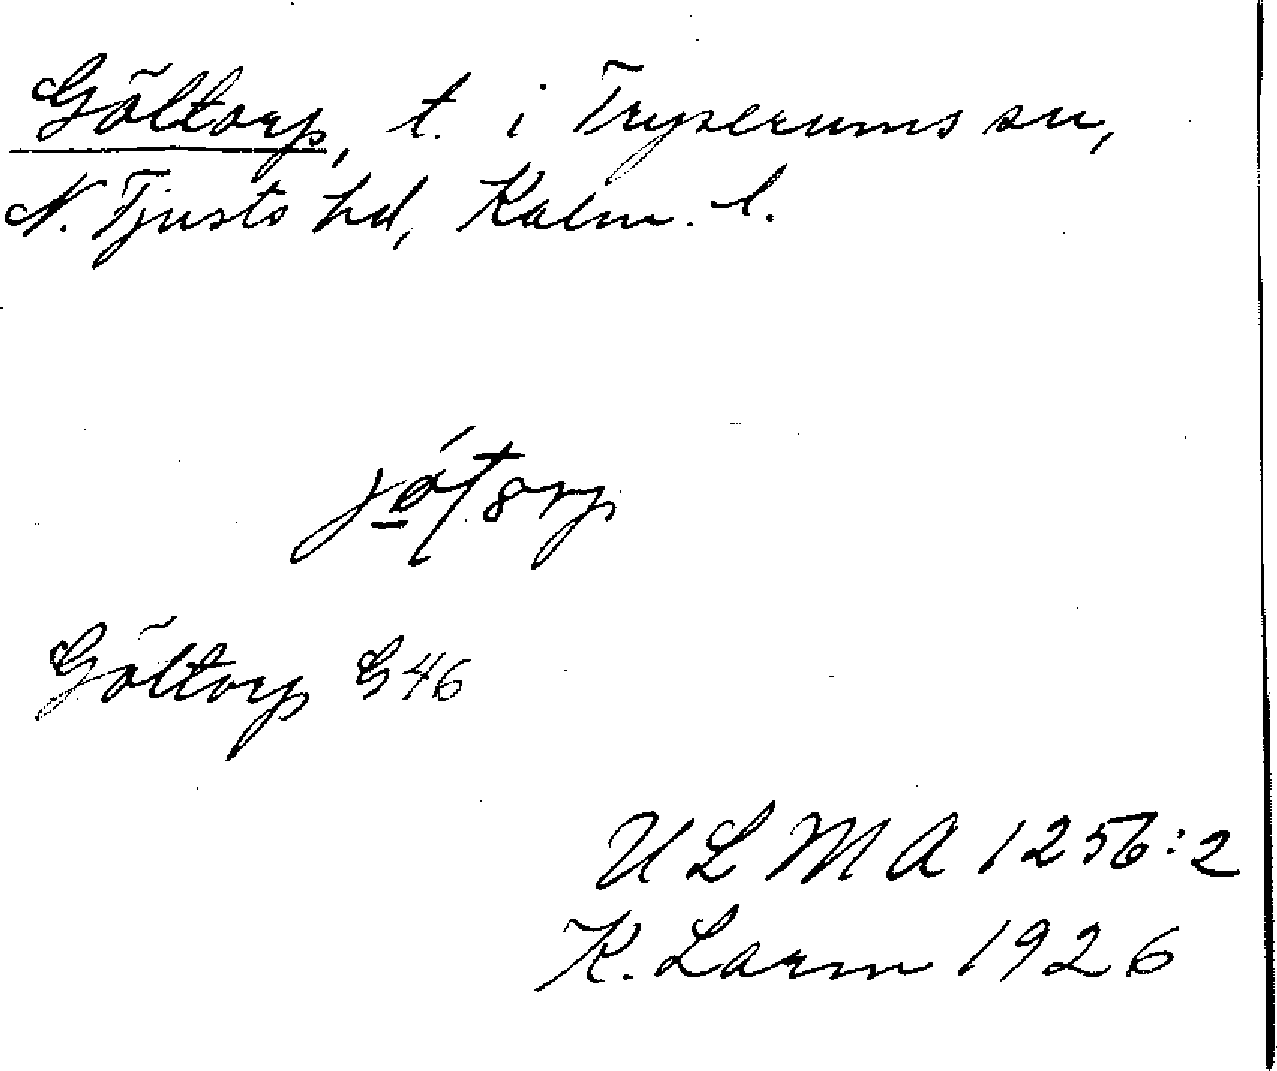 Göltorp, t. i Tryserums sn,
N. Tjusts hd, Kalm. l.
Göltorp G46
ULMA 1256:2
K. Larm 1926